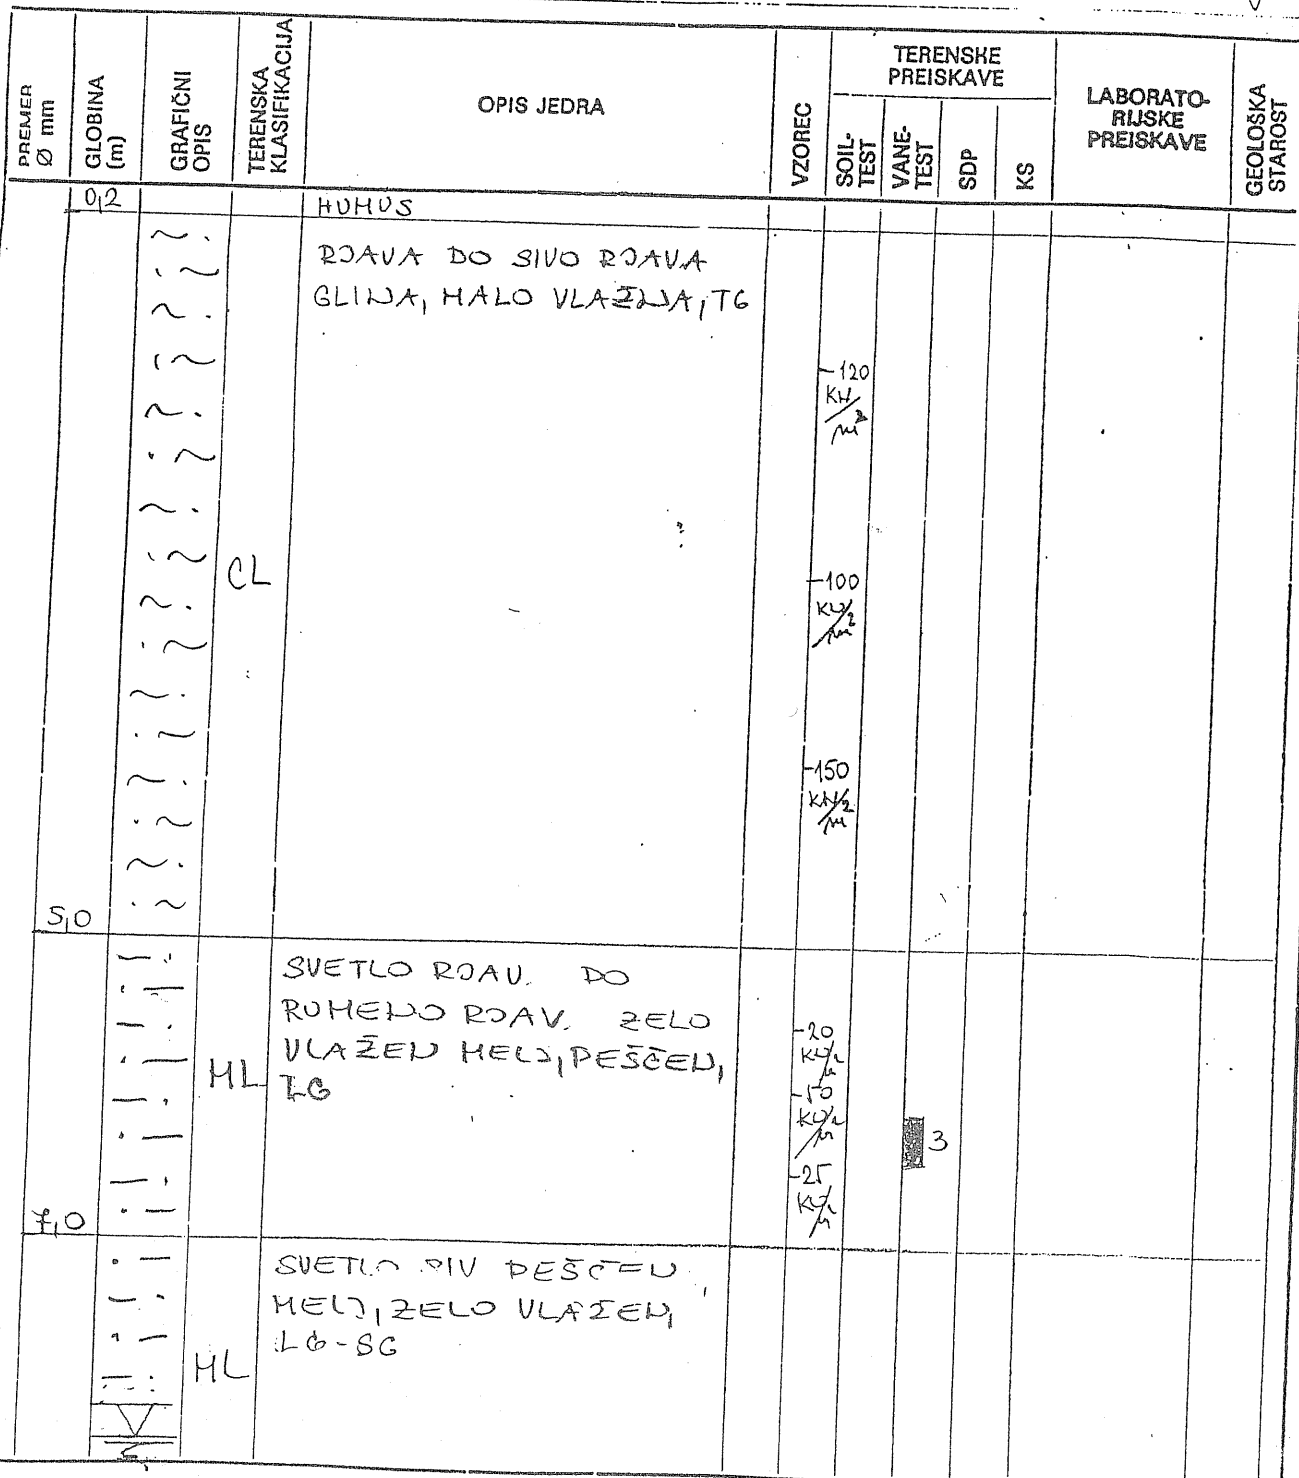 PREMER
Ø mm
GLOBINA
(m)
GRAFIČNI
OPIS
TERENSKA
KLASIFIKACIJA
OPIS JEDRA
VZOREC
TERENSKE
PREISKAVE
SOIL-
TEST
VANE-
TEST
SDP
KS
LABORATO-
RIJSKE
PREISKAVE
GEOLOŠKA
STAROST
0,2
HUMUS
RJAVA DO SIVO RJAVA
GLINA, MALO VLAŽNA, TG
-120
KN/m²
CL
-100
KN/m²
-150
KN/m²
5,0
SVETLO RJAV. DO
RUMENO RJAV. ZELO
VLAŽEN MELJ, PEŠČEN,
LG
ML
-20
KN/m²
-50
KN/m²
3
-25
KN/m²
7,0
SVETLO SIV PEŠČEN
MELJ, ZELO VLAŽEN,
LG-SG
ML